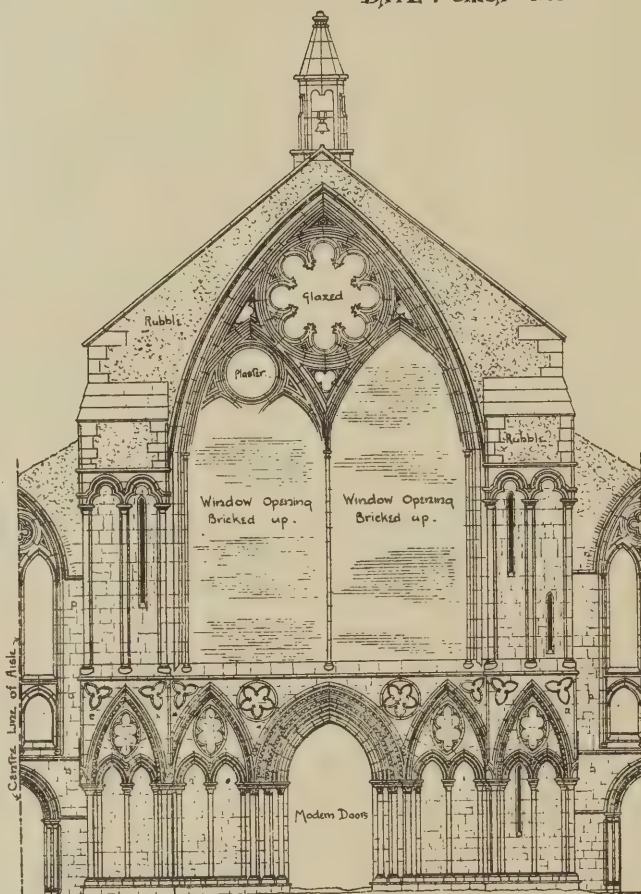 Glazed
Rubble
Plaster.
Rubble
Window Opening
Bricked up.
Window Opening
Bricked up.
Centre Line of Aisle
Modern Doors